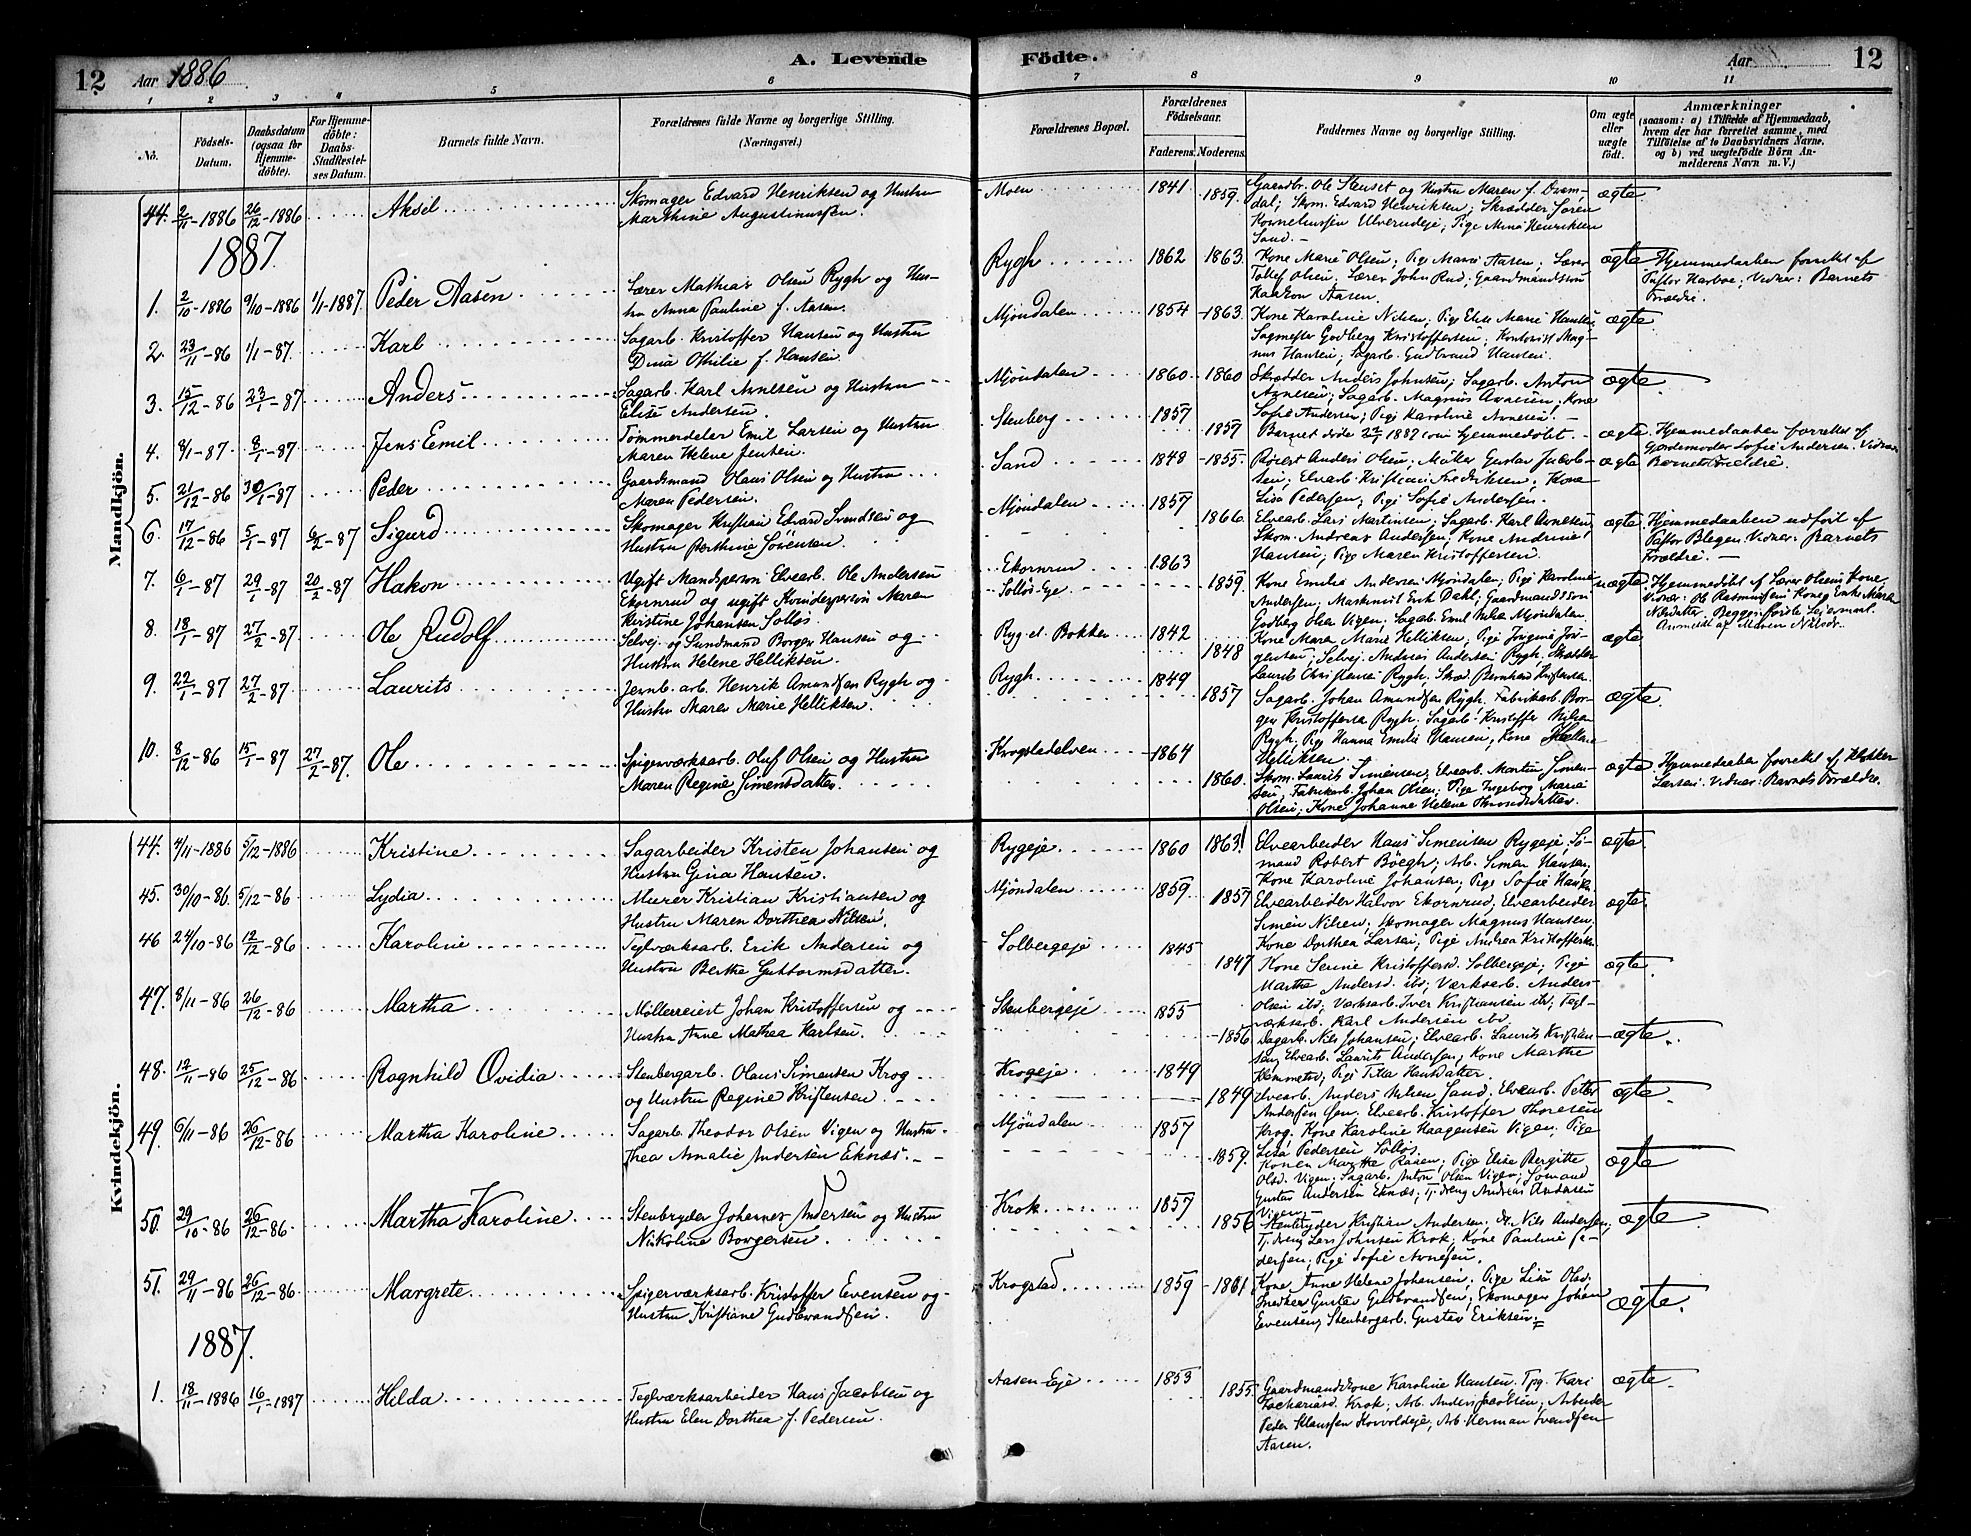 12 Aar 1886 A. Levende Födte. Aar 12
1 2 3 4 5 6 7 8 9 10 11
No. Födsels-Datum. Daabsdatum (ogsaa for Hjemme-döbte). For Hjemme-döbte: Daabs-Stadfæstel-ses Datum. Barnets fulde Navn. Forældrenes fulde Navne og borgerlige Stilling. (Næringsvei.) Forældrenes Bopæl. Forældrenes Födselsaar. Faderens. Moderens. Faddernes Navne og borgerlige Stilling. Om ægte eller uægte födt. Anmærkninger (saasom: a) i Tilfælde af Hjemmedaab, hvem der har forrettet samme, med Tilföielse af to Daabsvidners Navne, og b) ved uægtefödte Börn An-melderens Navn m. V.)
Mandkjön.
44. 2/11-1886 26/12-1886 Aksel Skomager Edvard Henriksen og Hustru
Marthine Augustinussen. Moen 1841 1859. Gaardbr. Ole Stenset og Hustru Maren f. Dram-
dal; Skom. Edvard Henriksen; Skrædder Sören
Korneliussen Ulverudeje; Pige Mina Henriksen
Sand. ægte
1887.
1. 2/10-1886 9/10-1886 1/1-1887. Peder Aasen Lærer Mathias Olsen Rygh og Hus-
tru Anna Pauline f. Aasen. Rygh 1862 1863. Kone Marie Olsen; Pige Marie Aasen; Lærer
Tollef Olsen; Lærer John Rud; Gaardmandssön
Haakon Aasen. ægte Hjemmedaaben forrettet af
Pastor Harboe; Vidner: Barnets
Forældre.
2. 23/11-86 1/1-87. Karl Sagarb. Kristoffer Hansen og Hustru
Dina Othilie f. Hansen. Mjöndalen 1854 1863. Kone Karoline Nilsen; Pige Elise Marie Hansen;
Sagmester Godberg Kristoffersen; Kontorist Mag-
nus Hansen; Sagarb. Gudbrand Hansen. ægte.
3. 15/12-86 23/1-87 Anders Sagarb. Karl Arnesen og Hustru
Elise Andersen. Mjöndalen 1860 1860 Skrædder Anders Johnsen; Sagarb. Anton
Arnesen; Sagarb. Magnus Arnesen; Kone
Sofie Andersen; Pige Karoline Arnesen. ægte.
4. 8/1-87. 8/1-87. Jens Emil Tömmerdeler Emil Larsen og Hustru
Maren Helene Jensen. Stenberg 1857 1857 Barnet döde 22/1 1887 som hjemmedöbt. ægte. Hjemmedaaben forrettet af
Gjordemoder Sofie Andersen. Vidner
Barnets Forældre.
5. 21/12-86 30/1-87 Peder Gaardmand Olaus Olsen og Hustru
Maren Pedersen. Sand 1848 1855. Röiert Anders Olsen; Möller Gustav Jacob-
sen; Elvearb. Kristian Fredriksen; Kone
Lisa Pedersen; Pige Sofie Andersen. ægte
6. 17/12-86 5/1-87 6/2-87 Sigurd Skomager Kristian Edvard Svendsen og
Hustru Berthine Sörensen. Mjöndalen 1857 1866. Elvearb. Lars Martinsen; Sagarb. Karl Arnesen;
Skom. Andreas Andersen; Kone Andrine
Hansen; Pige Maren Kristoffersen. ægte Hjemmedaaben udfört af
Pastor Blegen. Vidner: Barnets
Forældre.
7. 6/1-87 29/1-87 20/2-87 Hakon Ugift Mandsperson Elvearb. Ole Andersen
Ekornrud og ugift Kvindesperson Maren
Kristine Johansen Solløs Ekornrud
Solløs-Eje 1863 1859. Kone Emilia Andersen Mjöndalen; Pige Karoline
Andersen; Maskinist Erik Dahl; Gaardmandssön
Godberg Olsen Vigen; Sagarb. Emil Mjöndalen. uægte Hjemmedöbt af Lærer Olsens Kone,
Anmeldt af
8. 18/1-87 27/2-87 Ole Rudolf Selvej. og Sundmand Borger Hansen og
Hustru Helene Helliksen. Ryg et. Bakken 1842 1848 Kone Maren Marie Helliksen; Pige Jörgine Jör-
gensen; Selvej. Andreas Andersen Rygh.
Laurits Christensen Rygh. Skræd. Bernhard Kristensen ægte.
9. 22/1-87 27/2-87 Laurits Jernb. arb. Henrik Amundsen Rygh og
Hustru Maren Marie Helliksen. Rygh. 1849 1857 Sagarb. Johan Amundsen Rygh. Fabrikarb. Bor-
ger Kristoffersen Rygh. Sagarb. Kristoffer Nilsen
Rygh. Pige Hanna Emilie Hansen; Kone
Helliksen. ægte.
10. 8/12-86 15/1-87 27/2-87. Ole Spigerværksarb. Oluf Olsen og Hustru
Maren Regine Simensdatter. Krogstadelven 1864 1860. Skom. Laurits Simensen; Elvearb. Martin Simen-
sen; Fabrikarb. Johan Olsen; Pige Ingeborg Marie
Olsen; Kone Johanne Helene Thronsdatter. ægte. Hjemmedaaben forrettet af Klokker
Larsen: Vidner: Barnets Forældre.
Kvindekjön.
44. 4/11-1886 5/12-1886 Kristine Sagarbeider Kristen Johansen og
Hustru Gina Hansen. Rygeje 1860 1863. Elvearbeider Hans Simensen Rygeje; Sö-
mand Robert Böegh; Arb. Simen Hansen;
Kone Karoline Johansen; Pige Sofie Hansen. ægte.
45. 30/10-86. 5/12-86 Lydia Murer Kristian Kristiansen og
Hustru Maren Dorthea Nilsen. Mjöndalen 1859. 1857 Elvearbeider Halvor Ekornrud; Elvearbeider
Simen Nilsen; Skomager Magnus Hansen;
Kone Dorthea Larsen; Pige Andrea Kristoffersen ægte.
46 24/10-86 12/12-86 Karoline Teglværksarb. Erik Andersen og
Hustru Berthe Guttormsdatter. Solbergeje 1845 1847 Kone Serine Kristoffersd. Solbergeje; Pige
Martha Andersd. ibd; Værksarb. Anders
Olsen ibd; Værksarb. Iver Kristiansen ibd; Tegl-
værksarb. Karl Andersen ibd. ægte.
47. 8/11-86 26/12-86 Martha Möllerreiest Johan Kristoffersen og
Hustru Anne Mathea Karlsen. Stenbergeje 1855 1856 Dagarb. Nils Johansen; Elvearb. Laurits Kristian-
sen; Elvearb. Laurits Andersen; Kone Marthe
Klemmetsd; Pige Tilla Hansdatter. ægte.
48. 12/11-86 25/12-86 Ragnhild Ovidia Stenbergarb. Olaus Simensen Krog
og Hustru Regine Kristensen. Krogeje 1849 1849 Elvearb. Anders Nilsen Sand. Elvearb. Petter
Andersen. Elvearb. Kristoffer Thoresen
Krog. Kone Karoline Haagensen Vigen; Pige
Lisa Pedersen Solløs. ægte.
49. 6/11-86 26/12-86 Martha Karoline Sagarb. Theodor Olsen Vigen og Hustru
Thea Amalie Andersen Eknæs. Mjöndalen 1857 1859. Konen Marthe Aasen; Pige Elise Bergitte
Olsd. Vigen; Sagarb. Anton Olsen Vigen; Sömand
Gustav Andersen Eknæs; Tj. dreng Andreas Andersen
Vigen. ægte
50. 29/10-86 26/12-86 Martha Karoline Stenbryder Johannes Andersen og Hustru
Nikoline Borgersen. Krok 1857 1856 Stenbryder Kristian Andersen. do. Nils Andersen;
Tj. dreng Lars Johnsen Krok; Kone Pauline Pe-
dersen; Pige Sofie Arnesen. ægte.
51. 29/11-86 26/12-86 Margrete Spigerværksarb. Kristoffer Evensen og
Hustru Kristiane Gudbrandsen. Krogstad 1859 1861 Kone Anne Helene Johansen; Pige Lisa Olsd;
Snedker Gustav Gudbrandsen; Skomager Johan
Evensen; Stenbergarb. Gustav Eriksen. ægte.
1887.
1. 18/11-1886 16/1-1887 Hilda Teglværksarbeider Hans Jacobsen og
Hustru Elen Dorthea f. Pedersen. Aasen-Eje 1853 1855. Gaardmandskone Karoline Hansen. Tpg. Kari
Zachariasd. Krok; Arb. Anders Jacobsen; Arbeider
Peder Klaussen Horvoldeje; Arb. Herman Svendsen
Aasen. ægte.